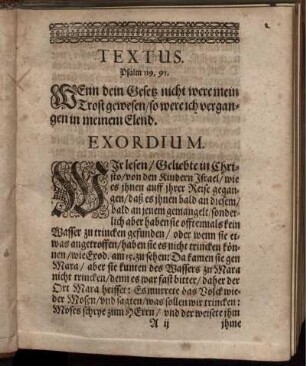 TEXTUS.
Psalm 119. 92.
WEnn dein Gesetz nicht were mein
Trost gewesen/ so were ich vergan-
gen in meinem Elend.
EXORDIUM.
WIr lesen/ Geliebte in Chri-
sto/ von den Kindern Israel/ wie
es jhnen auff jhrer Reise gegan-
gen/ daß es jhnen bald an diesem/
bald an jenem gemangelt/ sonder-
lich aber haben sie offtermals kein
Wasser zu trincken gefunden/ oder wenn sie et-
was angetroffen/ haben sie es nicht trincken kön-
nen/ wie Exod. am 15. zu sehen: Da kamen sie gen
Mara/ aber sie kunten des Wassers zu Mara
nicht trincken/ denn es war fast bitter/ daher der
Ort Mara heisset: Es murrete das Volck wie-
der Mosen/ vnd sagten/ was sollen wir trincken:
Moses schrye zum HErrn/ vnd der weisete jhm
A ij
jhme